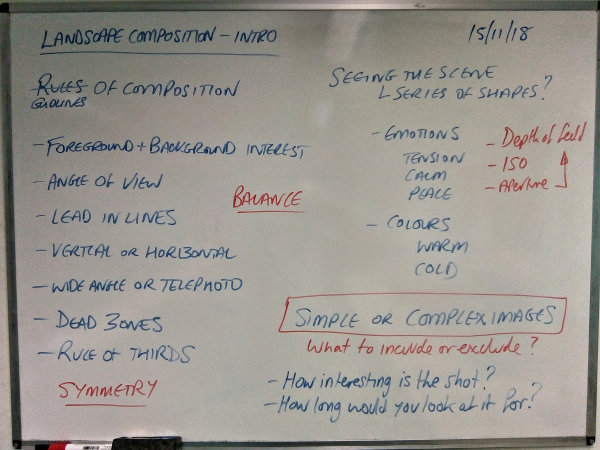 LANDSCAPE COMPOSITION - INTRO
15/11/18
- RULES OF COMPOSITION
GUIDLINES
- FOREGROUND + BACKGROUND INTEREST
- ANGLE OF VIEW
- LEAD IN LINES
- VERTICAL OR HORIZONTAL
- WIDE ANGLE OR TELEPHOTO
- DEAD ZONES
- RULE OF THIRDS
SYMMETRY
BALANCE
SEEING THE SCENE
SERIES OF SHAPES?
- EMOTIONS
TENSION
CALM
PEACE
- Depth of field
- ISO
- Aperture
- COLOURS
WARM
COLD
SIMPLE OR COMPLEX IMAGES
What to include or exclude?
- How interesting is the shot?
- How long would you look at it for?